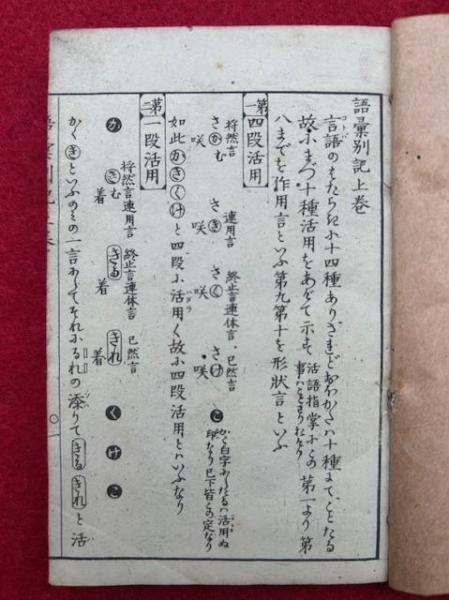 語彙別記上巻
言語のはたらきに十四種ありされどおほかたは十種にてことたる
故にまづ十種活用をあげて示す活語指掌にくの事はことわりおけり第一より第
八までを作用言といふ第九第十を形状言といふ
第一 四段活用
将然言 連用言 終止言連体言 已然言
さかむ さき さく さけ こ
咲 咲 咲 咲
かく白字にしたるは活用ぬ
印なり已下皆この定なり
如此かきくけと四段に活用く故に四段活用とはいふなり
第二 一段活用
将然言連用言 終止言連体言 已然言
か きむ きる きれ く け こ
着 着 着
かくきといふのみの一言にてそれにるれの添りてきるきれと活